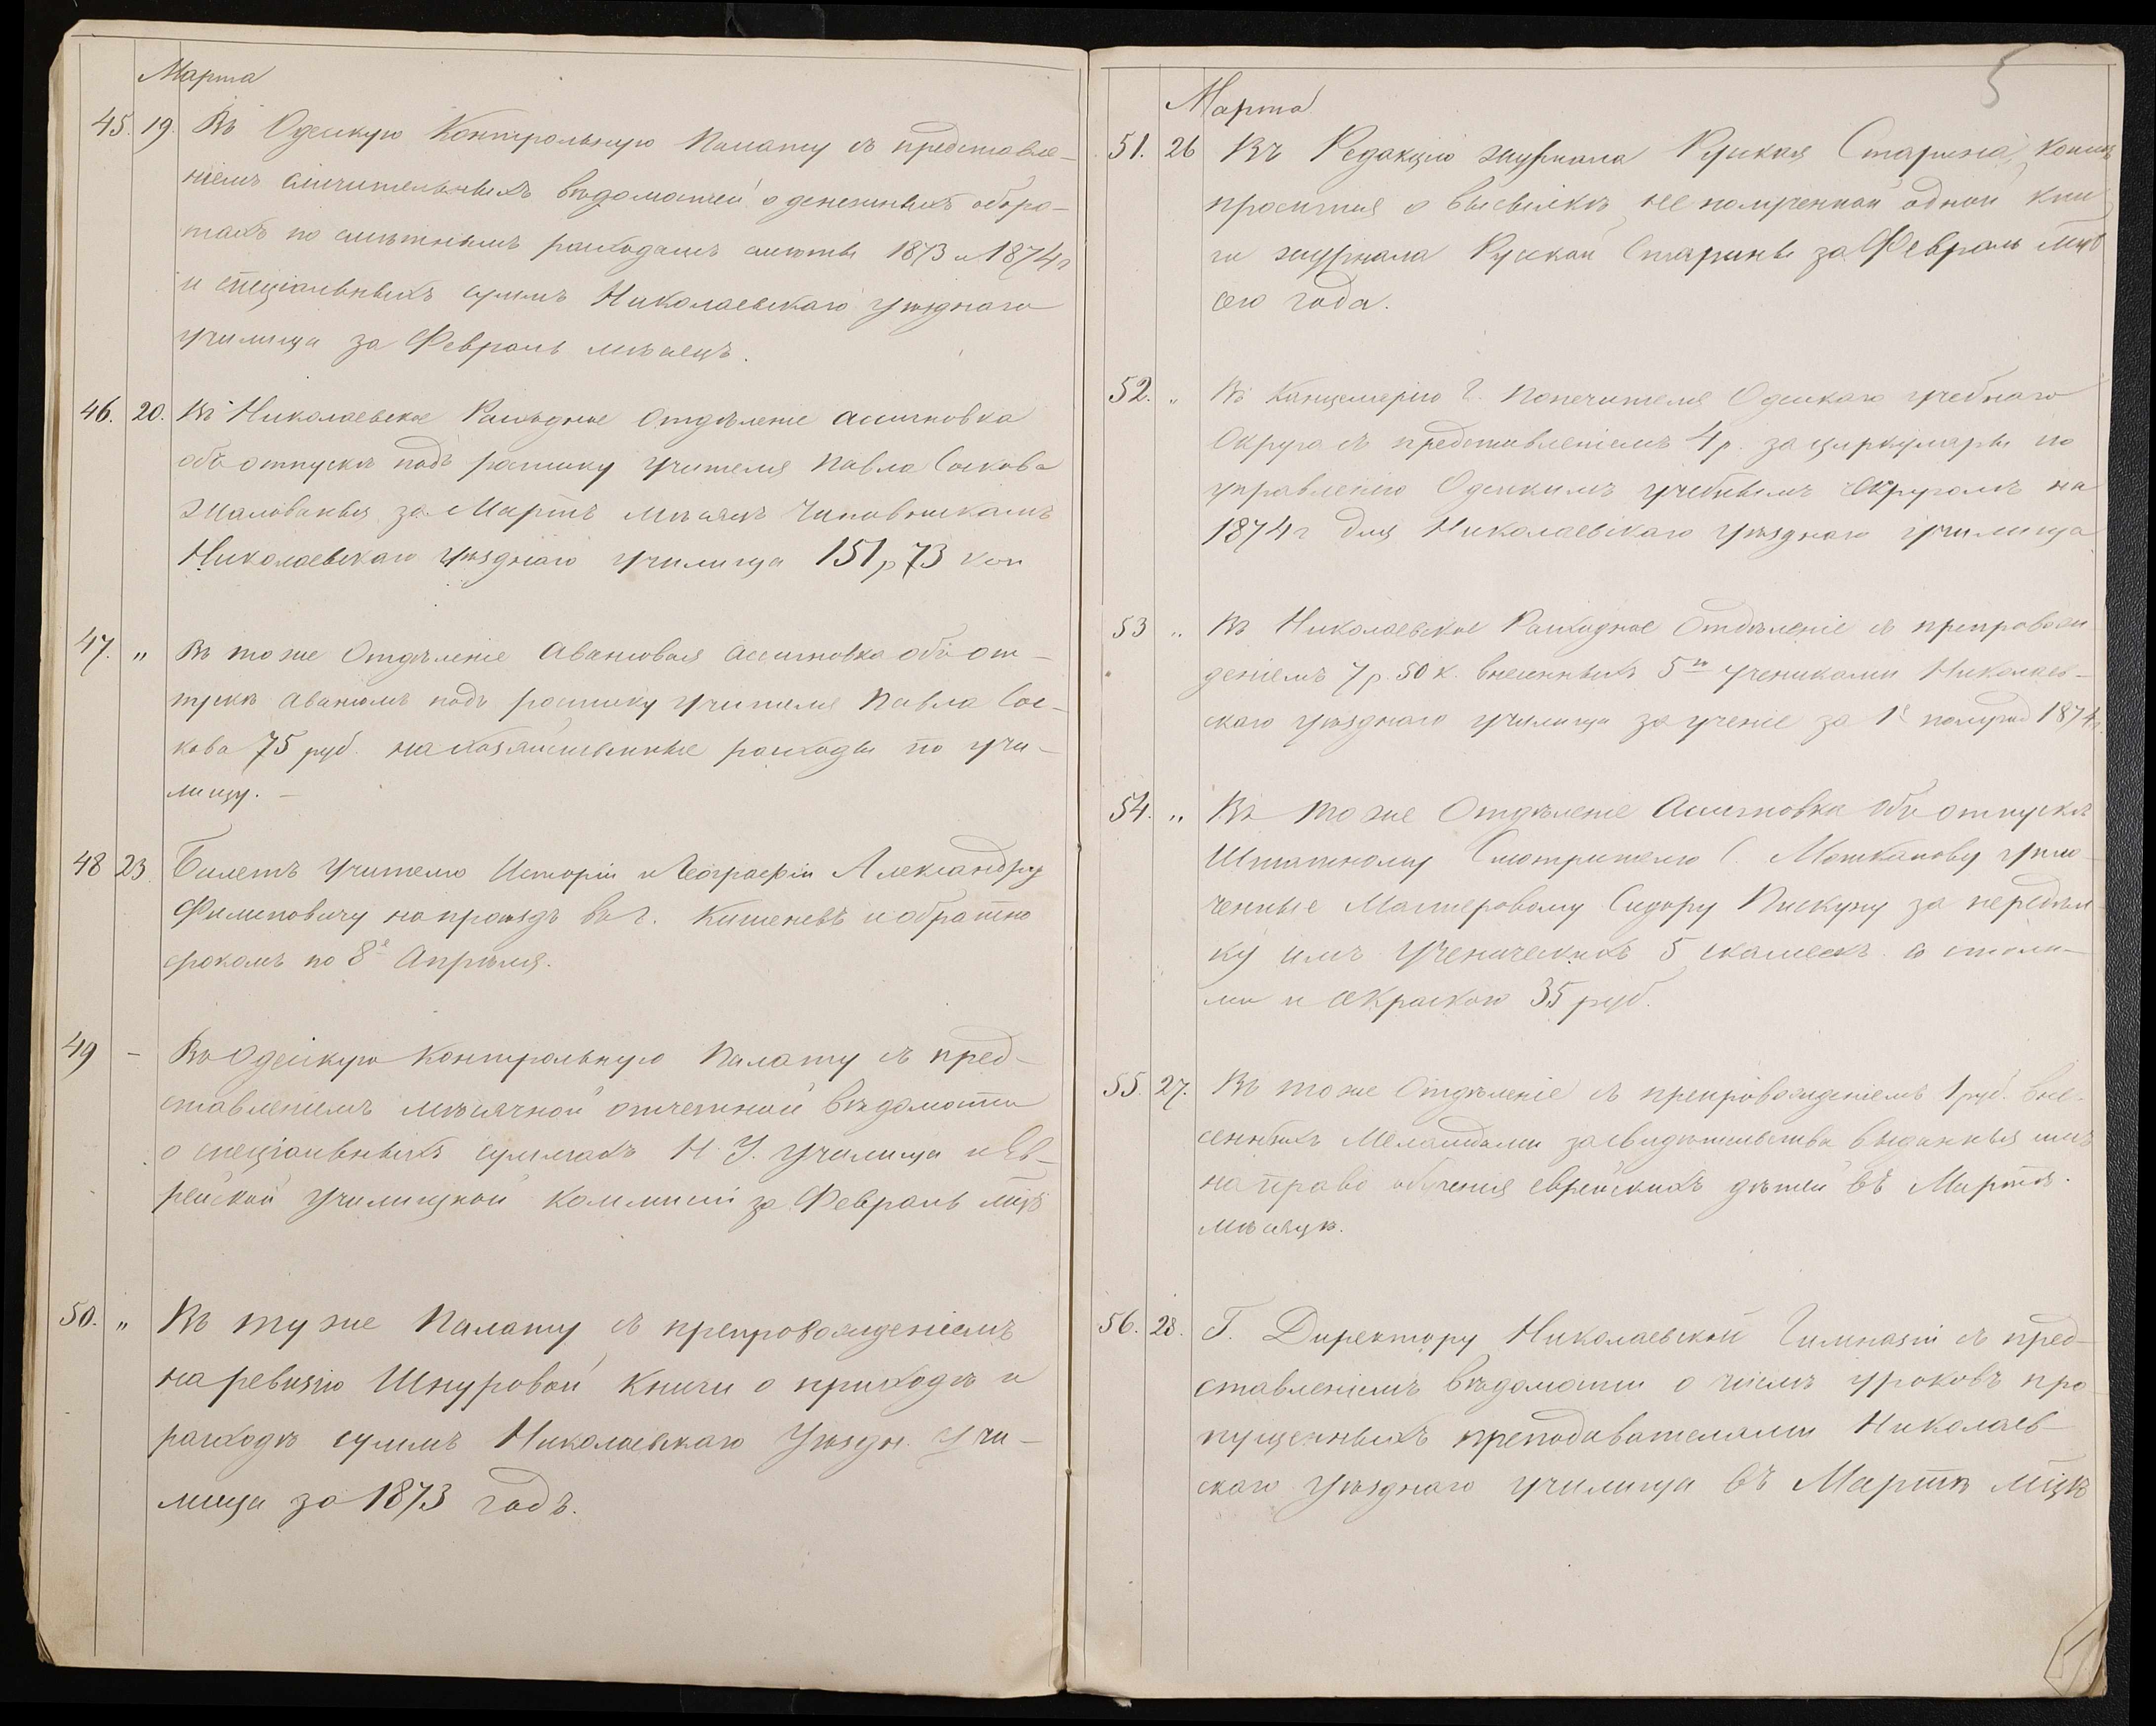 Марта
45. 19. Въ Одескую Контрольную Палату съ представле-
ніемъ сличительныхъ вѣдомостей о денежныхъ оборо-
тахъ по смѣтнымъ расходамъ смѣты 1873 и 1874 г
и спеціальныхъ суммъ Николаевскаго уѣзднаго
училища за Февраль мѣсяцъ.
46. 20. Въ Николаевское Расходное Отдѣленіе ассигновка
объ отпускѣ подъ росписку учителя Павла Соскова
жалованья за Мартъ мѣсяцъ Чиновникамъ
Николаевскаго уѣзднаго училища 151 р 73 коп
47. „ Въ тоже Отдѣленіе Авансовая ассигновка объ от-
пускѣ авансомъ подъ росписку учителя Павла Сос-
кова 75 руб. на хозяйственные расходы по учи-
лищу. –
48 23. Билетъ учителю Исторіи и Географіи Александру
Филиповичу на проѣздъ въ г. Кишеневъ и обратно
срокомъ по 8е Апрѣля.
49 – Въ Одескую Контрольную Палату съ пред-
ставленіемъ мѣсячной отчетной вѣдомости
о спеціальныхъ суммахъ Н. У. училища и Ев-
рейской училищной коммисіи за Февраль мцъ
50. „ Въ ту же Палату съ препровожденіемъ
на ревизію Шнуровой книги о приходѣ и
расходѣ суммъ Николаевскаго Уѣздн. Учи-
лища за 1873 годъ.
5
Марта
51. 26 Въ Редакцію журнала Руская Старина, коимъ
просится о высылкѣ не полученной одной кни
ги журнала Руской Старины за Февраль мцъ
сего года.
52. „ Въ Канцелярію Г. Попечителя Одескаго учебнаго
Округа съ представленіемъ 4 р. за циркуляры по
управленію Одескимъ учебнымъ Округомъ на
1874 г для Николаевскаго уѣзднаго училища
53 „ Въ Николаевское Расходное Отдѣленіе съ препровож
деніемъ 7 р. 50 к. внесенныхъ 5ю учениками Николаев-
скаго уѣзднаго училища за ученіе за 1е полугод 1874 г.
54. „ Въ тоже Отдѣленіе Ассигновка объ отпускѣ
Штатному Смотрителю С. Мотканову упло
ченные Мастеровому Сидору Пискуну за передѣл
ку имъ ученическихъ 5 скамеекъ со стола-
ми и окраскою 35 руб.
55. 27. Въ тоже Отдѣленіе съ препровожденіемъ 1 руб. вне-
сенныхъ Меламдами за свидѣтельства выданныя имъ
на право обученія еврейскихъ дѣтей въ Мартѣ.
мѣсяцѣ.
56. 28. Г. Директору Николаевской Гимназіи съ пред-
ставленіемъ вѣдомости о числѣ уроковъ про
пущенныхъ преподавателями Николаев-
скаго уѣзднаго училища въ Мартѣ мцѣ